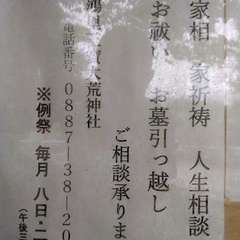 家相 家祈祷 人生相談
お祓い お墓引っ越し
ご相談承りま
大荒神社
電話番号 0887-38-20
※例祭 毎月 八日・二
(午後三